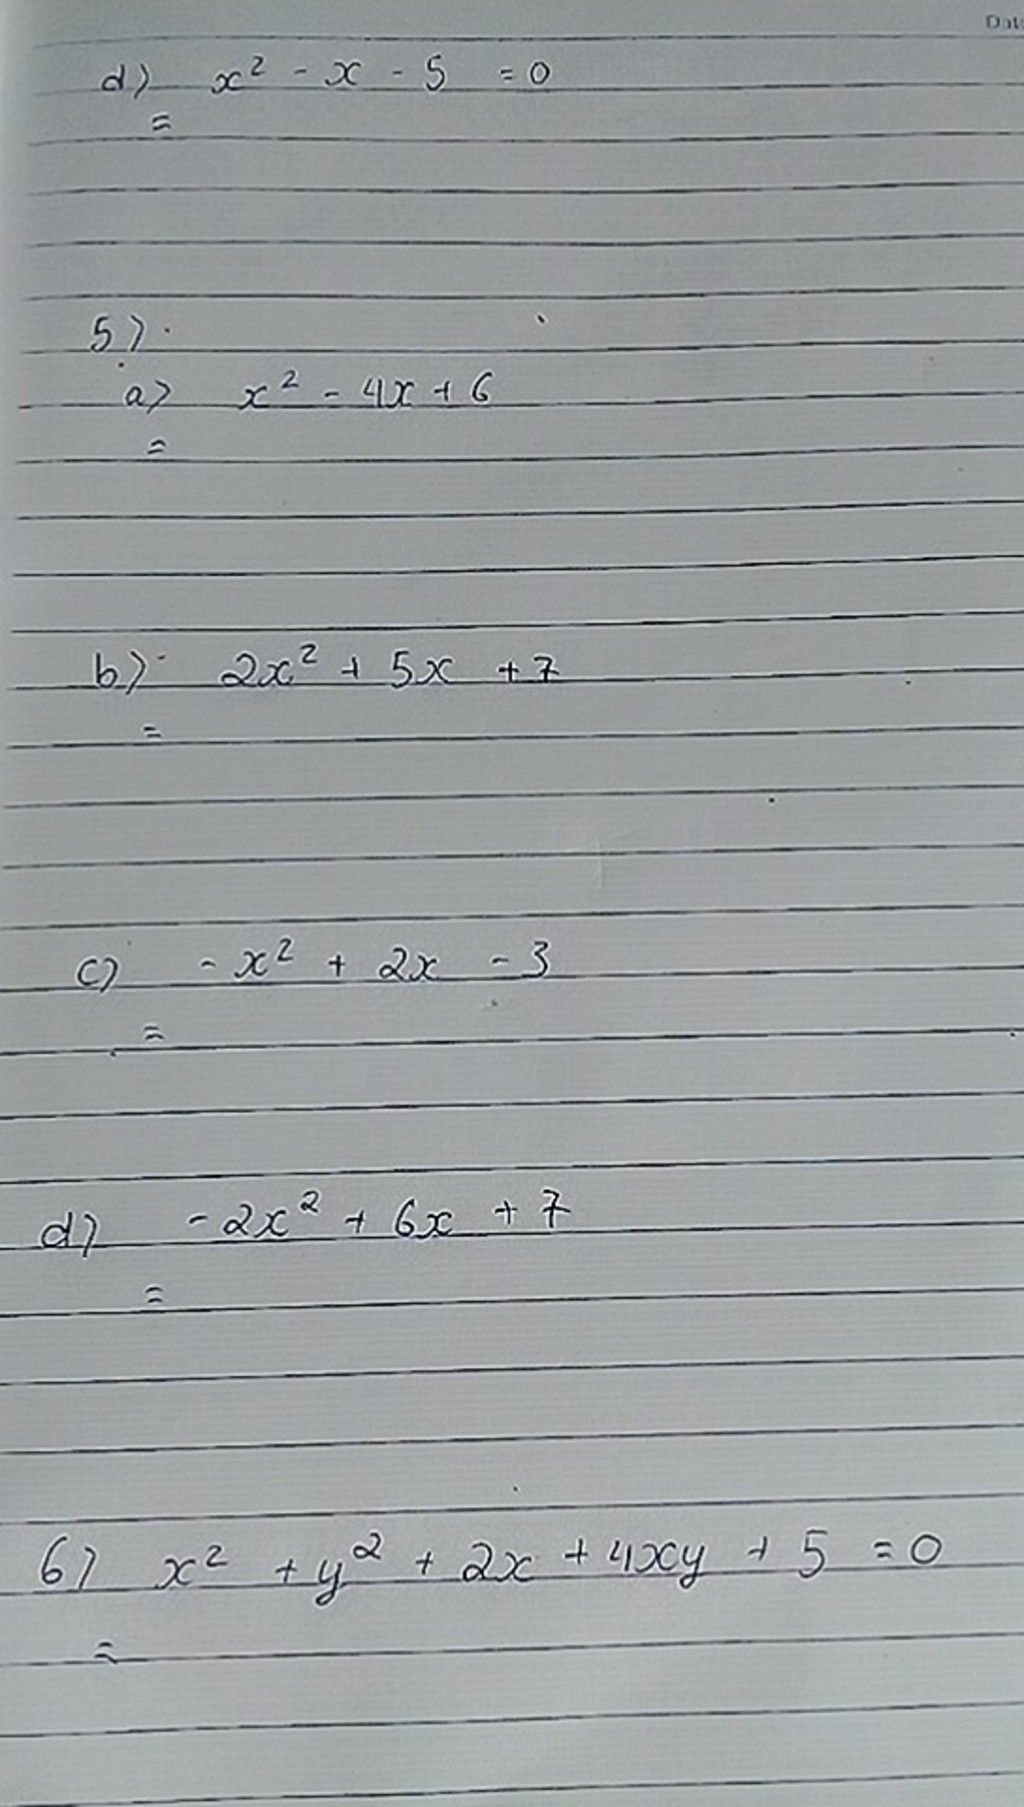 Dat
d) x² - x - 5 = 0
=
5)
a) x² - 4x + 6
=
b) 2x² + 5x + 7
=
c) - x² + 2x - 3
=
d) - 2x² + 6x + 7
=
6) x² + y² + 2x + 4xy + 5 = 0
=